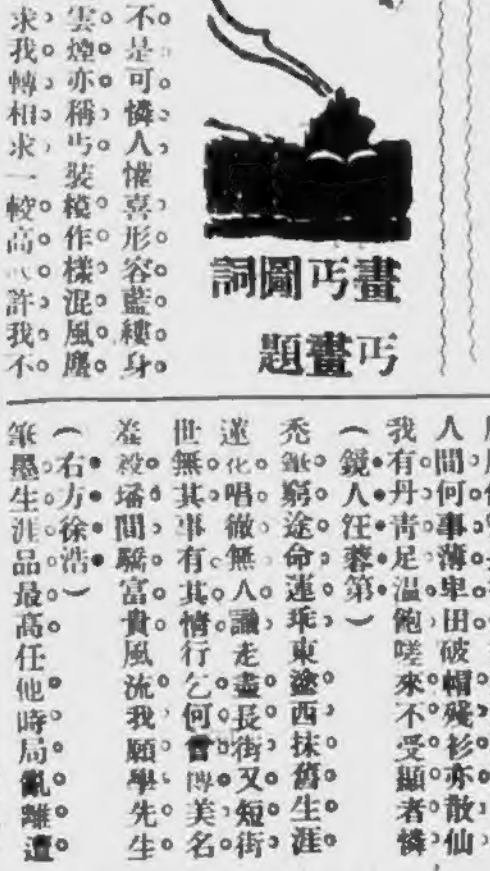 畫丐圖詞
丐畫題
不是可憐人懽喜形容藍縷身
雲煙亦稱丐裝模作樣混風塵
求我轉相求一較高 許我不
人間何事薄卑田破帽殘衫亦散仙
我有丹青足溫飽嗟來不受顯者憐
(鏡人汪蓉第)
禿筆窮途命運乖東塗西抹舊生涯
蓮化唱徹無人識走盡長街又短街
世無其事有其情行乞何曾博美名
羞殺墦間驕富貴風流我願學先生
(右方徐浩)
筆墨生涯品最高任他時局亂離遭